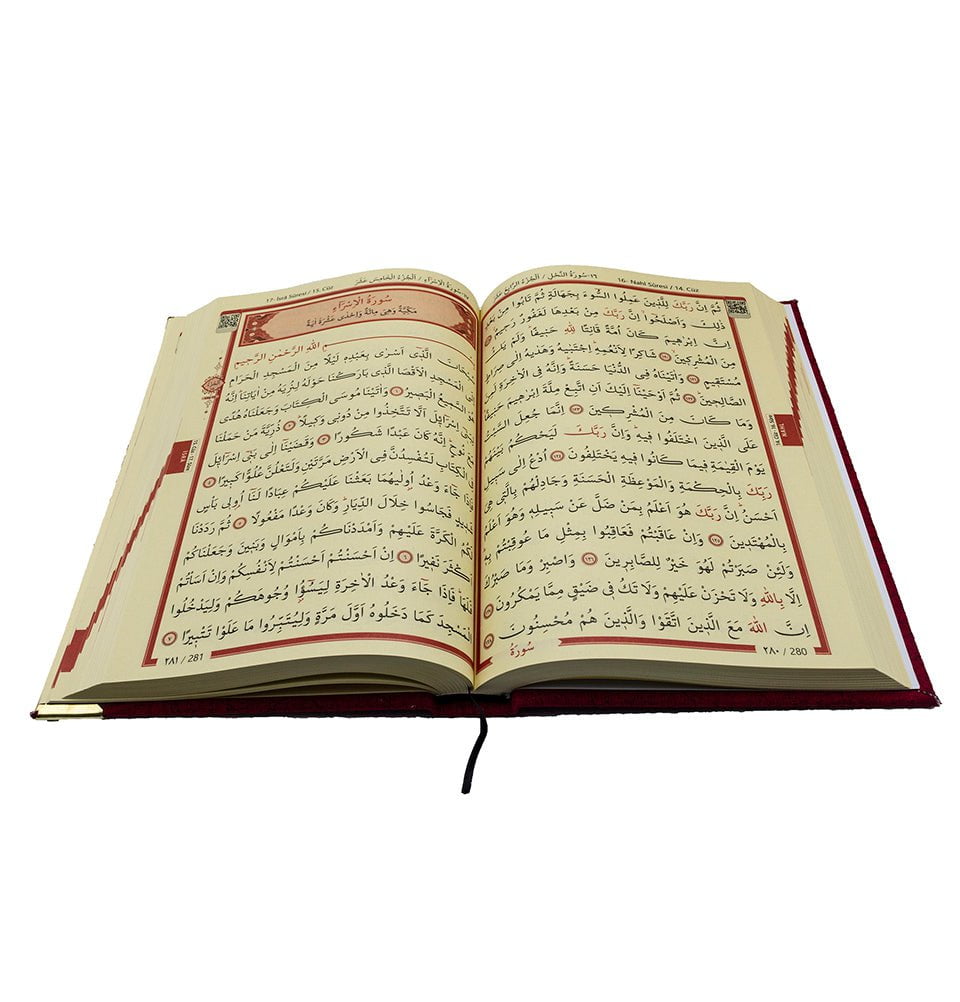 16- Nahl Sûresi / 14. Cüz
١٦-سُورَةُ النَّحْلِ / اَلْجُزْءُ الرَّابِعَ عَشَرَ
ثُمَّ اِنَّ رَبَّكَ لِلَّذٖينَ عَمِلُوا السُّٓوءَ بِجَهَالَةٍ ثُمَّ تَابُوا مِنْ
ذٰلِكَ وَاَصْلَحُٓوا اِنَّ رَبَّكَ مِنْ بَعْدِهَا لَغَفُورٌ رَحٖيمٌ
اِنَّ اِبْرٰهٖيمَ كَانَ اُمَّةً قَانِتًا لِلّٰهِ حَنٖيفًا وَلَمْ يَكُ
مِنَ الْمُشْرِكٖينَ ﴿١٢٠﴾ شَاكِرًا لِاَنْعُمِهٖ اِجْتَبٰيهُ وَهَدٰيهُ اِلٰى صِرَاطٍ
مُسْتَقٖيمٍ ﴿١٢١﴾ وَاٰتَيْنَاهُ فِى الدُّنْيَا حَسَنَةً وَاِنَّهُ فِى الْاٰخِرَةِ لَمِنَ
الصَّالِحٖينَ ﴿١٢٢﴾ ثُمَّ اَوْحَيْنَٓا اِلَيْكَ اَنِ اتَّبِعْ مِلَّةَ اِبْرٰهٖيمَ حَنٖيفًا
وَمَا كَانَ مِنَ الْمُشْرِكٖينَ ﴿١٢٣﴾ اِنَّمَا جُعِلَ السَّبْتُ
عَلَى الَّذٖينَ اخْتَلَفُوا فٖيهِ وَاِنَّ رَبَّكَ لَيَحْكُمُ بَيْنَهُمْ
يَوْمَ الْقِيٰمَةِ فٖيمَا كَانُوا فٖيهِ يَخْتَلِفُونَ ﴿١٢٤﴾ اُدْعُ اِلٰى سَبٖيلِ
رَبِّكَ بِالْحِكْمَةِ وَالْمَوْعِظَةِ الْحَسَنَةِ وَجَادِلْهُمْ بِالَّتٖى هِىَ
اَحْسَنُ اِنَّ رَبَّكَ هُوَ اَعْلَمُ بِمَنْ ضَلَّ عَنْ سَبٖيلِهٖ وَهُوَ اَعْلَمُ
بِالْمُهْتَدٖينَ ﴿١٢٥﴾ وَاِنْ عَاقَبْتُمْ فَعَاقِبُوا بِمِثْلِ مَا عُوقِبْتُمْ بِهٖ
وَلَئِنْ صَبَرْتُمْ لَهُوَ خَيْرٌ لِلصَّابِرٖينَ ﴿١٢٦﴾ وَاصْبِرْ وَمَا صَبْرُكَ
اِلَّا بِاللّٰهِ وَلَا تَحْزَنْ عَلَيْهِمْ وَلَا تَكُ فٖى ضَيْقٍ مِمَّا يَمْكُرُونَ
اِنَّ اللّٰهَ مَعَ الَّذٖينَ اتَّقَوْا وَالَّذٖينَ هُمْ مُحْسِنُونَ ﴿١٢٨﴾
سُورَةُ
٢٨٠ / 280
17- İsrâ Sûresi / 15. Cüz
سُورَةُ الْاِسْرَاءِ / اَلْجُزْءُ الْخَامِسَ عَشَرَ
سُورَةُ الْاِسْرَاءِ
مَكِّيَّةٌ وَهِىَ مِائَةٌ وَاِحْدٰى عَشْرَةَ اٰيَةً
اللّٰهِ الرَّحْمٰنِ الرَّحٖيمِ
الَّذٖٓى اَسْرٰى بِعَبْدِهٖ لَيْلًا مِنَ الْمَسْجِدِ الْحَرَامِ
الْمَسْجِدِ الْاَقْصَا الَّذٖى بَارَكْنَا حَوْلَهُ لِنُرِيَهُ مِنْ اٰيَاتِنَا اِنَّهُ
هُوَ السَّمٖيعُ الْبَصٖيرُ ﴿١﴾ وَاٰتَيْنَا مُوسَى الْكِتَابَ وَجَعَلْنَاهُ هُدًى
لِبَنٖٓى اِسْرَٓائٖلَ اَلَّا تَتَّخِذُوا مِنْ دُونٖى وَكٖيلًا ﴿٢﴾ ذُرِّيَّةَ مَنْ حَمَلْنَا
مَعَ نُوحٍ اِنَّهُ كَانَ عَبْدًا شَكُورًا ﴿٣﴾ وَقَضَيْنَٓا اِلٰى بَنٖٓى اِسْرَٓائٖلَ
الْكِتَابِ لَتُفْسِدُنَّ فِى الْاَرْضِ مَرَّتَيْنِ وَلَتَعْلُنَّ عُلُوًّا كَبٖيرًا ﴿٤﴾
فَاِذَا جَٓاءَ وَعْدُ اُولٰيهُمَا بَعَثْنَا عَلَيْكُمْ عِبَادًا لَنَٓا اُولٖى بَأْسٍ
شَدٖيدٍ فَجَاسُوا خِلَالَ الدِّيَارِ وَكَانَ وَعْدًا مَفْعُولًا ﴿٥﴾ ثُمَّ رَدَدْنَا
لَكُمُ الْكَرَّةَ عَلَيْهِمْ وَاَمْدَدْنَاكُمْ بِاَمْوَالٍ وَبَنٖينَ وَجَعَلْنَاكُمْ
اَكْثَرَ نَفٖيرًا ﴿٦﴾ اِنْ اَحْسَنْتُمْ اَحْسَنْتُمْ لِاَنْفُسِكُمْ وَاِنْ اَسَأْتُمْ
فَلَهَا فَاِذَا جَٓاءَ وَعْدُ الْاٰخِرَةِ لِيَسُٓؤُ۫ا وُجُوهَكُمْ وَلِيَدْخُلُوا
الْمَسْجِدَ كَمَا دَخَلُوهُ اَوَّلَ مَرَّةٍ وَلِيُتَبِّرُوا مَا عَلَوْا تَتْبٖيرًا ﴿٧﴾
٢٨١ / 281